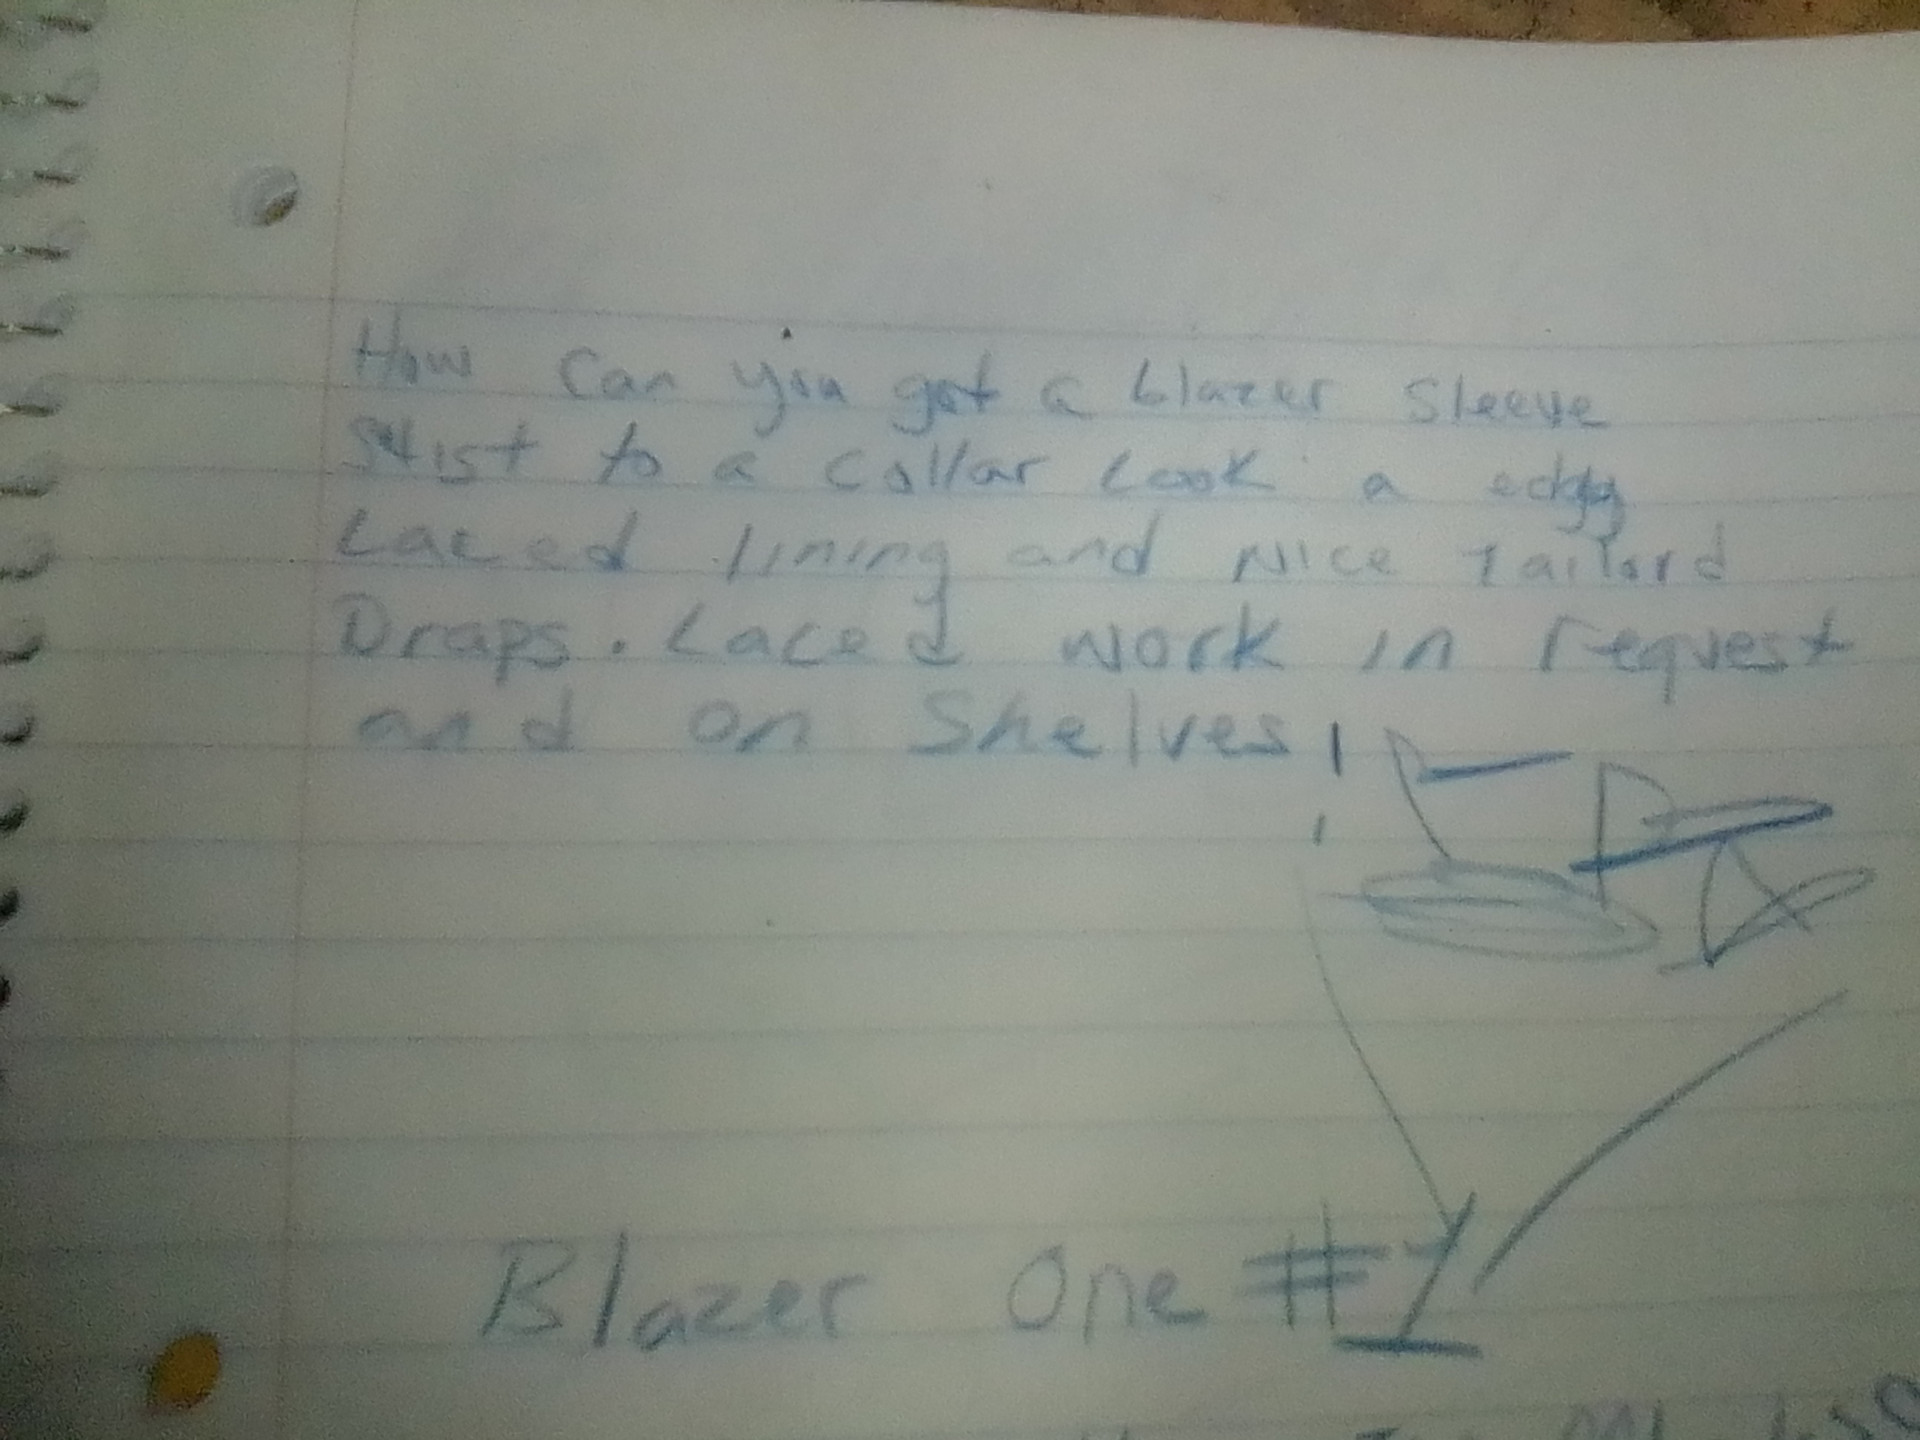 How can you got a blazer sleeve
to a collar Look a edgy
Laced lining and Nice Tailord
Draps. Laced work in request
and on Shelves!
Blazer One #1